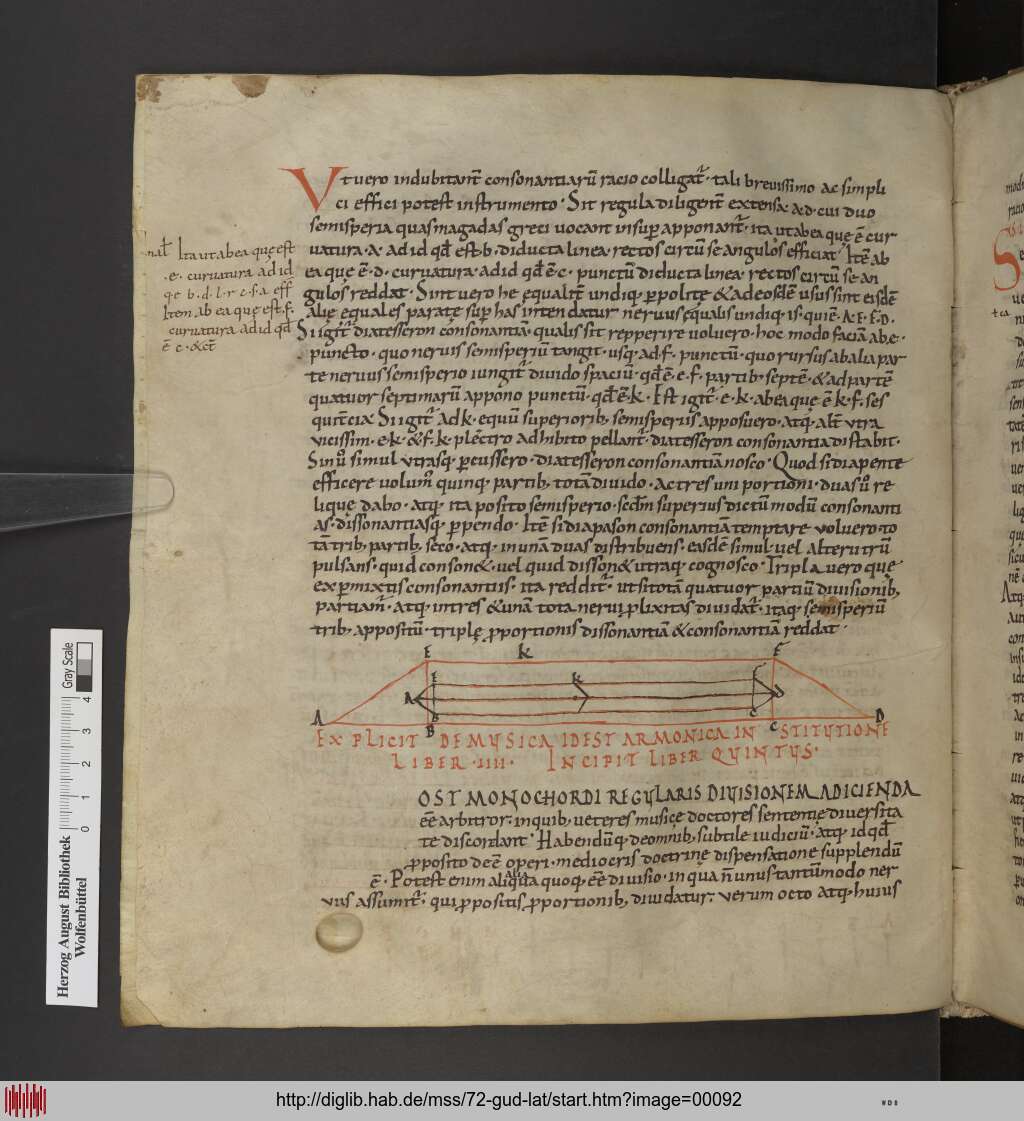 Vt uero indubitant̄ consonantiarū racio colligat̄· tali breuissimo ac simpli
ci effici potest instrumento· Sit regula diligent̄ extensa· a·d· cui duo
semisperia quas magadas greci uocant insup̄ apponant̄· ita ut ab ea que ē cur
uatura· a· ad id qđ est·b· diducta linea· rectos circū se angulos efficiat· Itē ab
ea que ē·d· curuatura· ad id qđ ē·c· punctū diducta linea· rectos circū se an
gulos reddat· Sint uero he equalit̄ undiq· ꝑpolite & ad eosdē usus sint eisdē
alię equales parate· sup̄ has intendatur neruus equalis undiq· is· qui ē· A·E·F·D·
Si igit̄ diatesseron consonantiā· qualis sit repperire voluero· hoc modo faciā· ab·e·
puncto· quo neruis semisperiū tangit· usq· ad·f· punctū· quo rursus ab alia par
te neruus semisperio iungit̄· diuido spaciū· qđ ē·e·f· partib· septē· & ad partē
quatuor septimarū appono punctū· qđ ē·k· Est igit̄·e·k· ab ea que ē·k·f· ses
quit̄cia· Si igit̄ ad k· equū superiorib, semisperiis apposuero· atq· alt̄ utra
uicissim·e·k· & f·k· plectro adhibito pellant̄· diatesseron consonantia distabit·
Sin ů simul utrasq· ꝑcussero· diatesseron consonantiā nosco· Quod si diapente
efficere volum̉ quinq· partib, totā diuido· Ac tres uni portioni· duas ů re
lique dabo· atq· ita posito semisperio· scđm superius dictū modū consonanti
as· dissonantiasq· ꝑpendo· Itē si diapason consonantiā temptare voluero· to
tā trib, partib, seco· atq· in unā duas distribuens· easdē simul uel alterutrū
pulsans· quid conson&· uel quid disson& utraq· cognosco· Tripla uero que
ex ꝑmixtis consonantiis· ita reddit̄· ut si totā quatuor partiū diuisionib,
partiam̉· atq· in tres & unā tota nerui ꝓlixitas diuidat̄· itaq· semisperiū
trib, appositū· triplę ꝓportionis dissonantiā & consonantiā reddat·
nal̄ Ita ut ab ea que est
·e· curuatura ad id
qe b·d·l·r c·f·a eff
Item ab ea que est·f·
curuatura ad id qđ
ē c·&cēt
E k F
E k F
A D
B C
A B C D
EXPLICIT DE MUSICA IDEST ARMONICA INSTITUTIONE
LIBER ·IIII· INCIPIT LIBER QUINTUS·
OST MONOCHORDI REGULARIS DIVISIONEM ADICIENDA
eē arbitror· in quib, ueteres musice doctores sententię diuersita
te discordant· Habendūq· de omnib, subtile iudiciū· atq· id qđ
ꝓposito deē operi· mediocris doctrine dispensatione supplendū
ē· Potest enim aliqua quoq· eē diuisio· in qua ñ unus tantūmodo ner
uus assumit̄· qui ꝓpositis ꝓportionib, diuidatur; verum octo atq· huius
Herzog August Bibliothek
Wolfenbüttel
0 1 2 3 4
Gray Scale
http://diglib.hab.de/mss/72-gud-lat/start.htm?image=00092